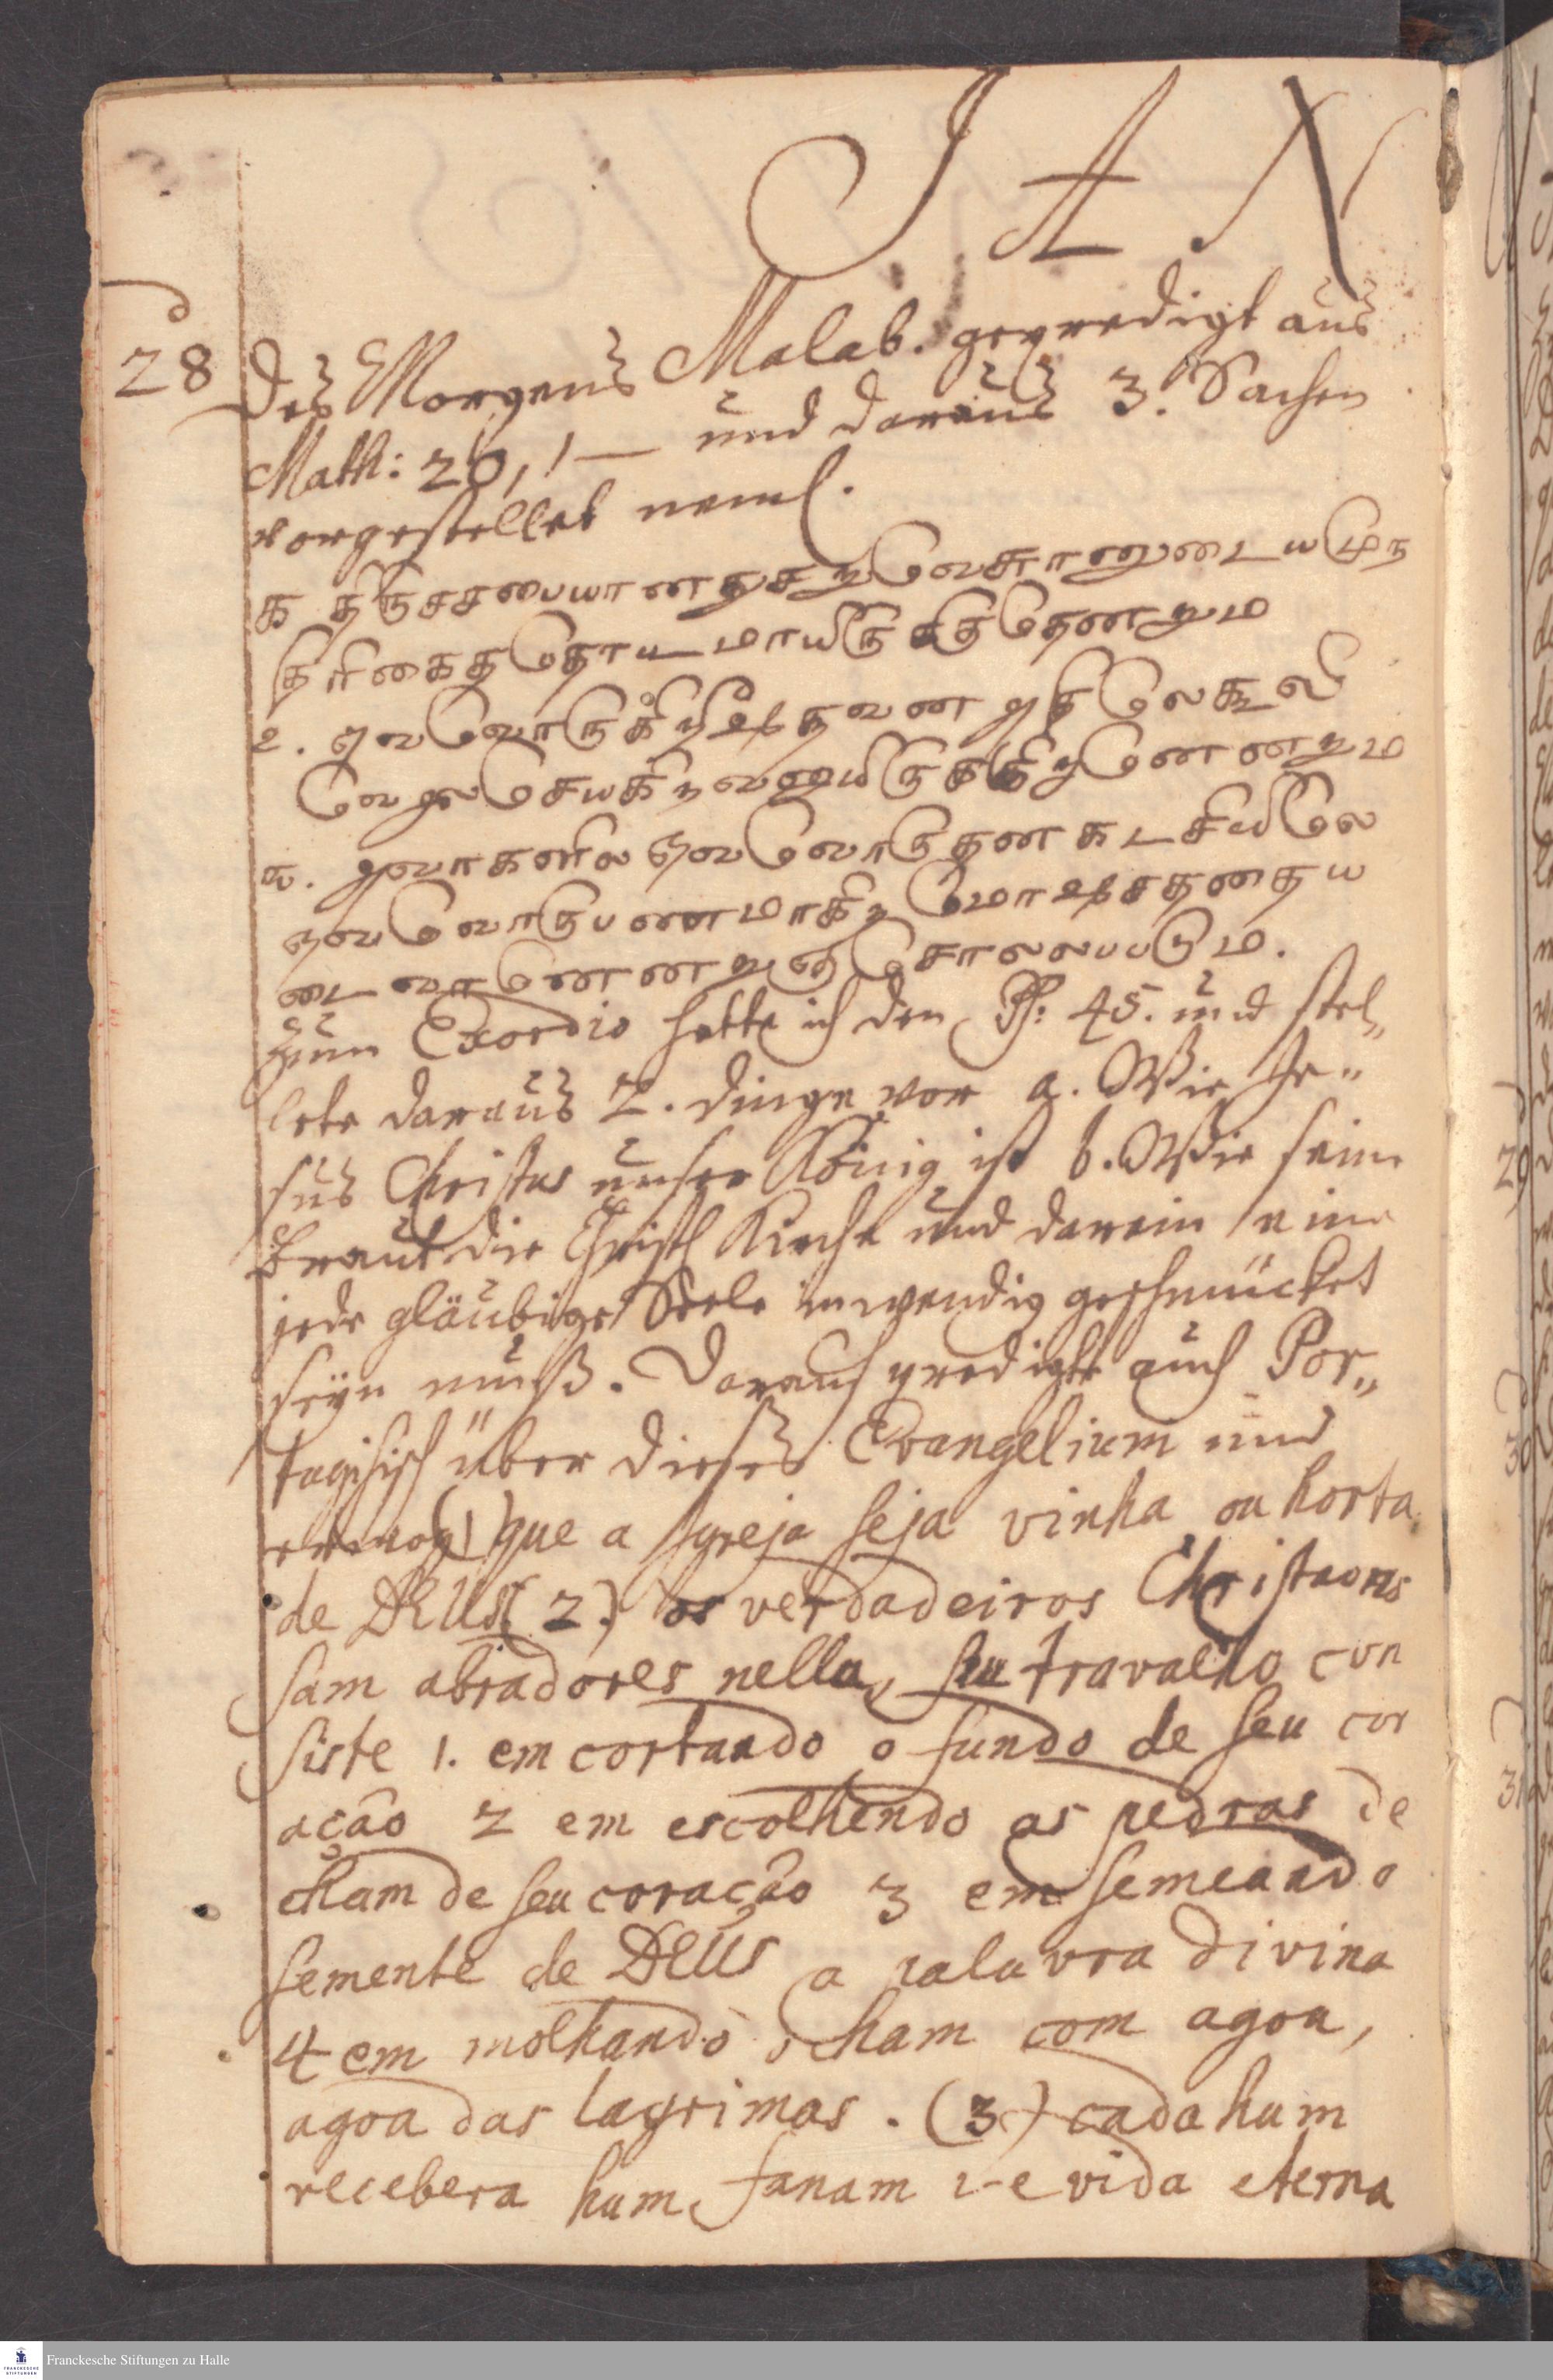 J A N
28 Des Morgens Malab. gepredigt aus
Math: 20,1 — und daraus 3. Sachen
vorgestellet neml.
க திருச்சபையானது சறுவேசுரனுடைய முந
திரிகைத் தோட்டமாயிருக்குதெனறும
௨. ஒவவொருகிறீஷ்தவன இதிலேகூலி
வேலைசெயகிறவனாயிருக்கிறானெனறும
௩. இவரகளில ஒவவொருததன கடசியிலே
ஒவவொருபணமாகிற மோஷசததைய
டைவானெனறுஞ சொலலபபடும.
zum Exordio hatte ich den Ps: 45. und stel„
lete daraus 2. dinge vor a. Wie Je„
sus Christus unser König ist b. Wie seine
Braut die Christl Kirche und darein eine
jede gläubige Seele inwendig geschmücket
seyn muß. Darauf predigte auch Por„
tugisisch über dieses Evangelium und
(1) que a Igreja seja vinha ou horta
de DEUS (2.) os verdadeiros Christaons
sam abradores nella, su travalho con
siste 1. em cortando o fundo de seu cor
ação 2 em escolhendo as pedras de
cham de seu coração 3 em semeando
semente de DEUS a palavra divina
4 em molhando o cham com agoa,
agoa das lagrimas. (3) cada hum
recebera hum fanam i-e vida eterna
29
30
31
Franckesche Stiftungen zu Halle